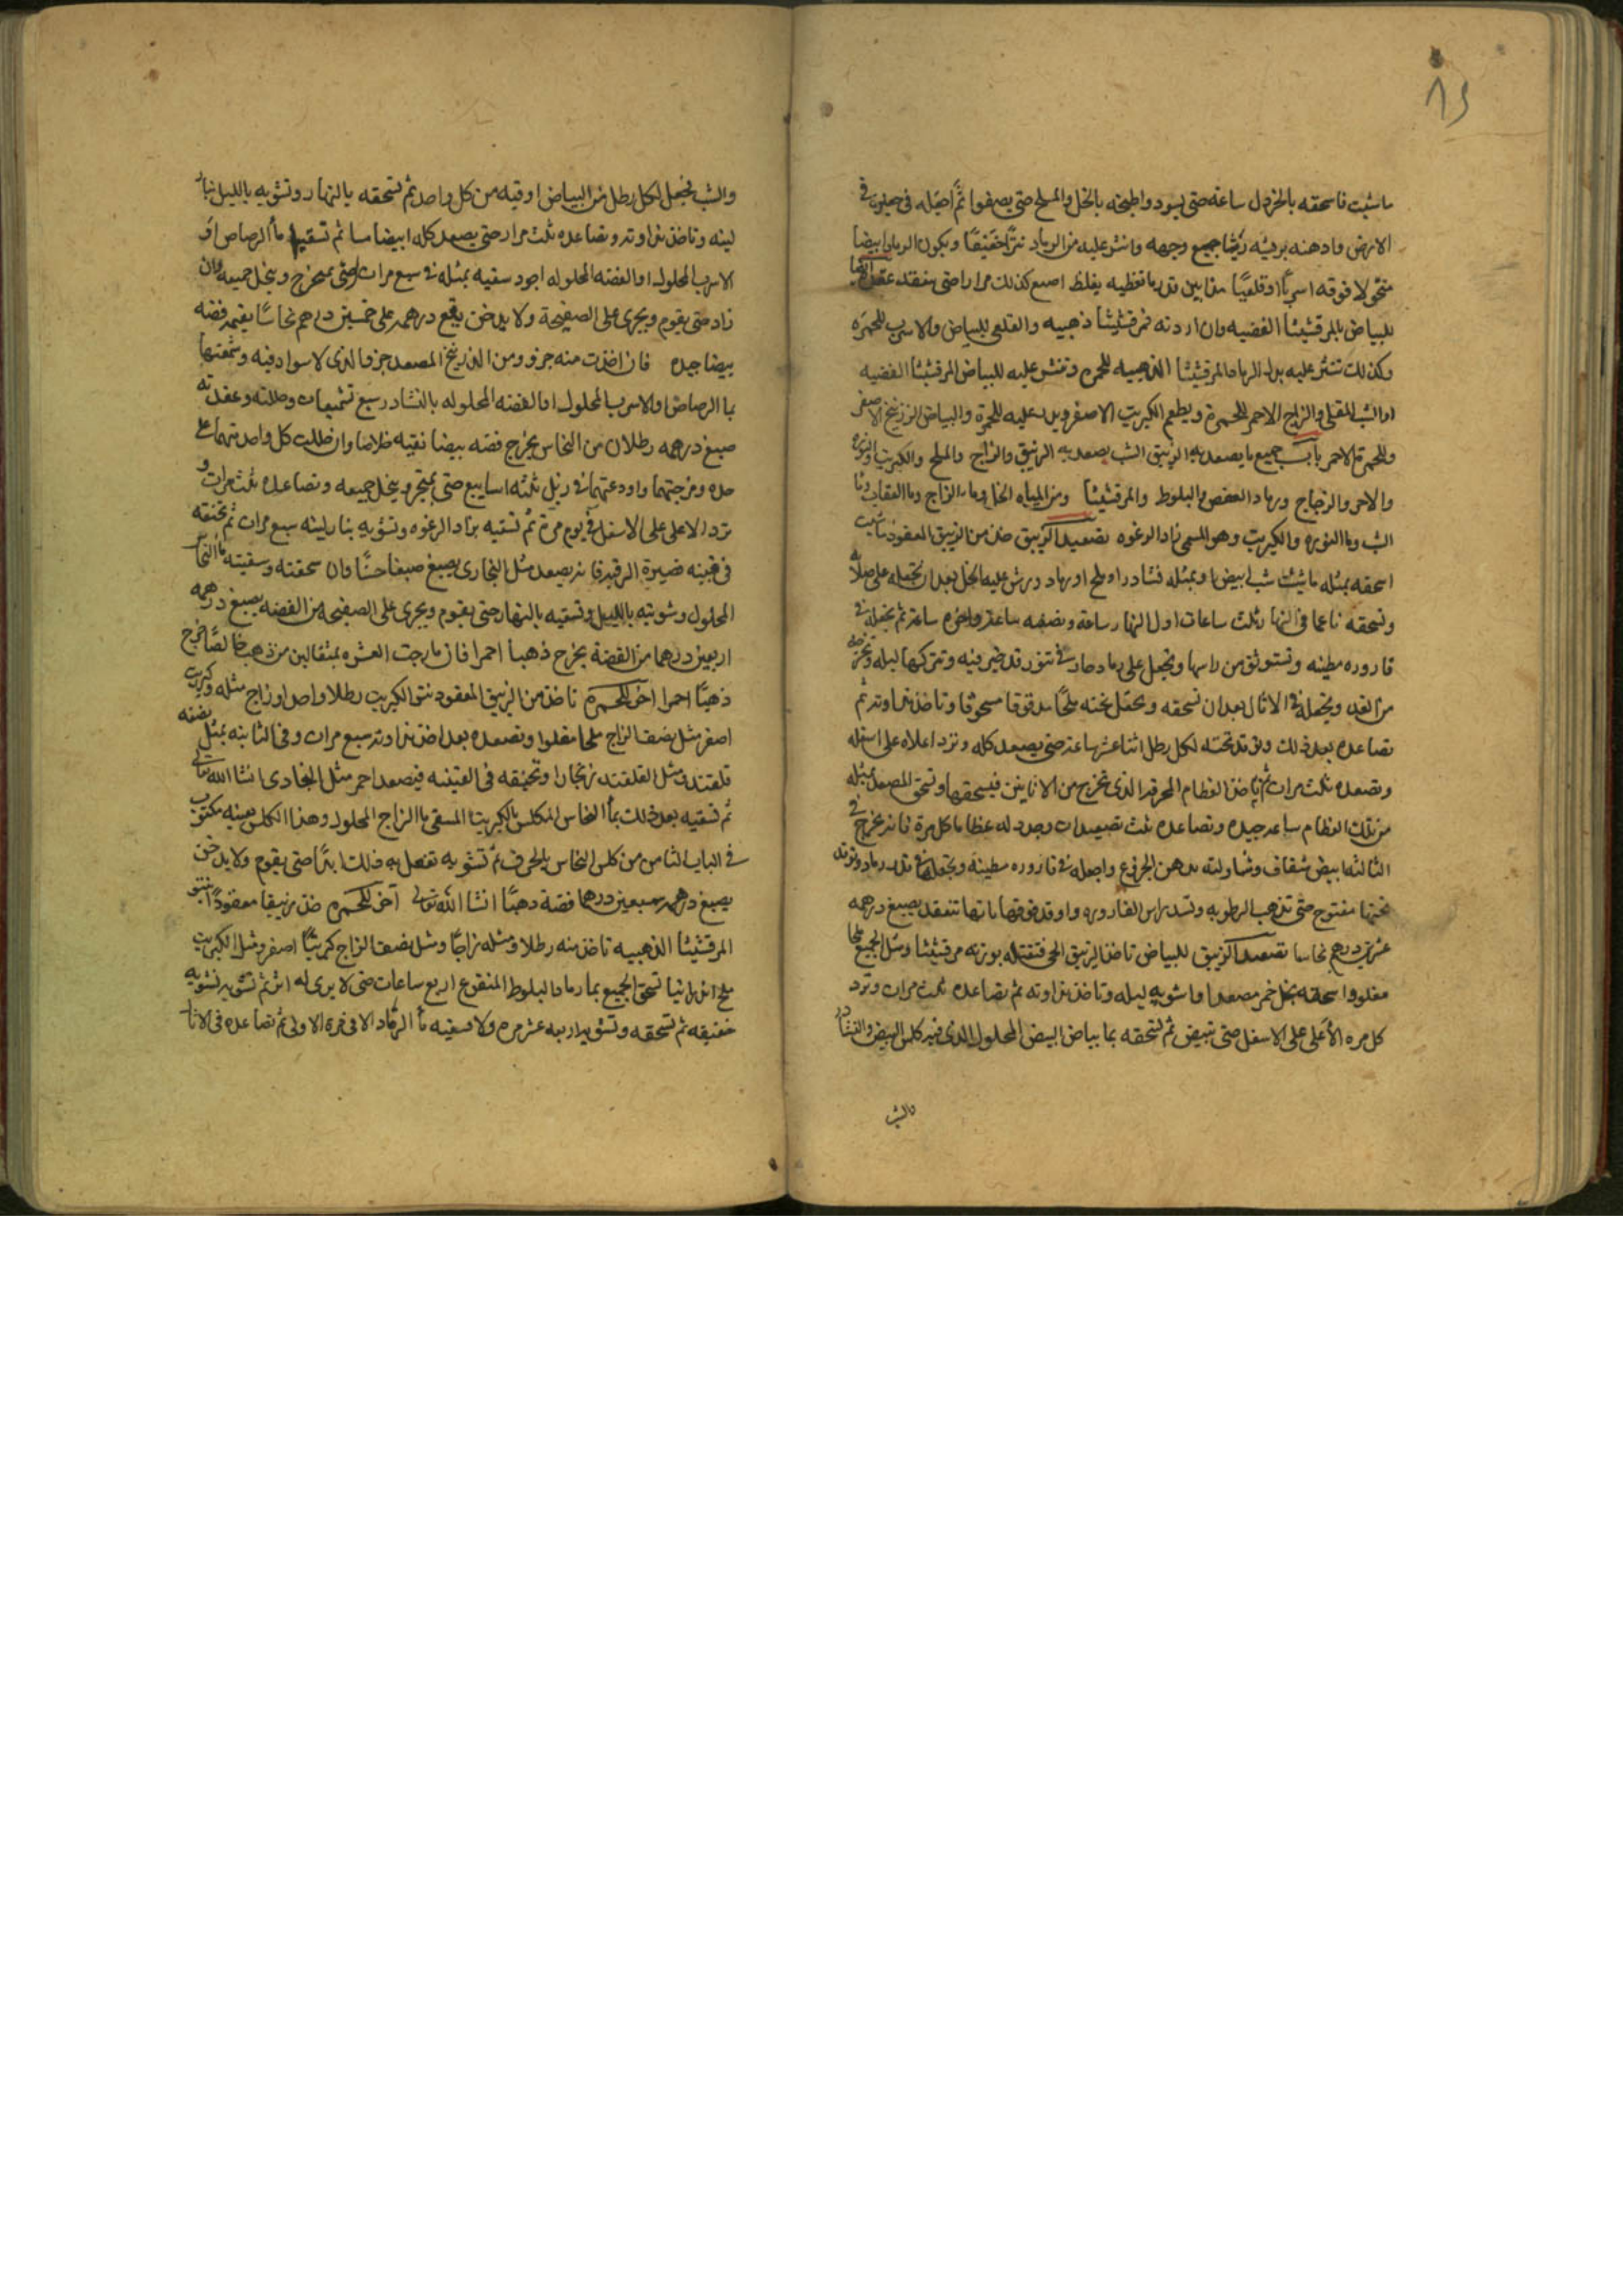 ٨٤
ما شئت فاسحقه بالخردل ساعة حتى يسود واطبخه بالخل والملح حتى يصفوا ثم اجعله فى
الارض وادهنه بريشه رشا جميع وجهه وانثر عليه من الرماد نثرا خفيفا ويكون الرماد ابيضا
منخولا فوقه اسربا او قلعيا ما تغطيه يغلظ اصنع كذلك مرارا حتى ينعقد
للبياض بالمرقشيثا الفضيه وان اردته فمرقشيثا ذهبيه والقلعى للبياض والاسرب للحمره
وكذلك تنثر عليه بدل الرماد المرقشيثا الذهبيه للحمره وتنثر عليه للبياض المرقشيثا الفضيه
او الشب المقلى والزاج الاحمر للحمرة ويطعم الكبريت الاصفر عليه للحمرة والبياض الزرنيخ الاصفر
وللحمرة الاحمر باب جميع ما يصعد به الزيبق الشب يصعد به الزيبق والزاج والملح والكبريت
والاجر والزجاج ورماد العفص والبلوط والمرقشيثا ومن المياه الخل وما الزاج وما العقاب
الشب وما النوره والكبريت وهو المسمى الرغوه تصعيد الزيبق خذ من الزيبق المعقود ما شيت
اسحقه بمثله ما شيت شب ابيض او بمثله نشادر او ملح او رماد ورش عليه الخل بعد ان تجعله على صلاية
وتسحقه ناعما فى النهار ثلث ساعات اول النهار ساعة ونصفه ساعة واخره ساعة ثم تجعله فى
قاروره مطينه وتستوثق من راسها وتجعل على رماد حار فى تنور قد خبز فيه وتتركها ليله وتخرجه
من الغد وتجعله فى الاثال بعد ان تسحقه وتجعل تحته ملحا مدقوقا مسحوقا وتاخذ ثم
تصاعده بعد ذلك وتوقد تحته لكل رطل اثنا عشر ساعة حتى يصعد كله وترد اعلاه على اسفله
وتصعده ثلث مرات ثم تاخذ العظام المحرقه الذى تخرج من الاتاتين فيسحقها وتسحق المصعد بمثله
من تلك العظام ساعه جيده وتصاعده ثلث تصعيدات وجدد له عظاما كل مرة فانه يخرج فى
الثالثه ابيض شفاف دهن الخروع واجعله فى قاروره مطينه وتجعلها فى قدر رماد وتوقد
تحتها مفتوح حتى تذهب الرطوبه وتسد راس القاروره واوقد فوقها ينعقد يصبغ درهمه
عشرين درهم نحاسا تصعيد الزيبق للبياض تاخذ الزيبق الحى فتقتله بوزنه مرقشيثا ومثل الجميع ملحا
مقلوا اسحقه بخل خمر مصعدا واشويه ليله وتاخذ ثم تصاعده ثلث مرات وترد
كل مره الاعلى على الاسفل حتى يبيض ثم تسحقه بما بياض البيض المحلول الذى فيه كلس البيض والنشادر
والشب
والشب تجعل لكل رطل من البياض اوقيه من كل واحد ثم تسحقه بالنهار وتشويه بالليل بنار
لينه وتاخذ وتصاعده ثلث مرار حتى يصعد كله ابيضا ثم تسقيه ماء الرصاص او
الاسرب المحلول او الفضه المحلوله اجود سقيه بمثله فى سبع مرات حتى وينحل جميعه وان
زاد حتى يقوم ويجرى على الصفيحة ولا يدخن يقع درهمه على خمسين درهم نحاسا يقيمه فضه
بيضا جيده فان اخذت منه جزو ومن الزرنيخ المصعد جزو الذى لا سواد فيه وشمعتها
بما الرصاص والاسرب المحلول او الفضه المحلوله بالنشادر سبع تشميعات وحللته وعقدته
صبغ درهمه رطلان من النحاس يخرج فضه بيضا نقيه خلاصا وان حللت كل واحد منهما على
حده ومزجتهما واودعتهما فى زبل ثلثه اسابيع حتى يمتزج وينحل جميعه وتصاعده ثلث مرات
ترد الاعلى على الاسفل فى يوم مرة ثم تسقيه الرغوه وتشويه بنار لينه سبع مرات ثم تخنقه
فى قنينه فانه يصعد مثل النجارى يصبغ صبغا حسنا وان سحقته وسقيته
المحلول وشويته بالليل وتسقيه بالنهار حتى يقوم ويجرى على الصفيحه من الفضه يصبغ درهمه
اربعين درهما من الفضة يخرج ذهبا احمرا فان مازجت العشره بمثقالين من ذهب خالصا خرج
ذهبا احمرا اخر للحمرة تاخذ من الزيبق المعقود بنتو الكبريت رطلا واحد او زاج مثله وكبريت
اصفر مثل نصف الزاج ملحا مقلوا وتصعده سبع مرات وفى الثانيه بمثل نصفه
قلقند ومثل القلقند زنجارا وتخنقه فى القنينه فيصعد احمر مثل انشا الله تعالى
ثم تسقيه بعد ذلك بماء النحاس المكلس بالكبريت المسقى بما الزاج المحلول وهذا الكلس بعينه مكتوب
فى الباب الثامن من كلس النحاس ثم تشويه تفعل به ذلك ابدا حتى يقوم ولا يدخن
يصبغ درهمه سبعين درهما فضة ذهبا انشا الله تعالى اخر للحمره خذ زيبقا معقودا بنتو
المرقشيثا الذهبيه تاخذ منه رطلا ومثله زاجا ومثل نصف الزاج كبريتا اصفر ومثل الكبريت
ملح تسحق الجميع بما رماد البلوط المنقوع اربع ساعات حتى لا يرى له اثر ثم تشويه تشويه
خفيفه ثم تسحقه وتشويه اربعه عشر مره ولا تسقيه ماء الرماد الا فى المرة الاولى ثم تصاعده فى الاثال